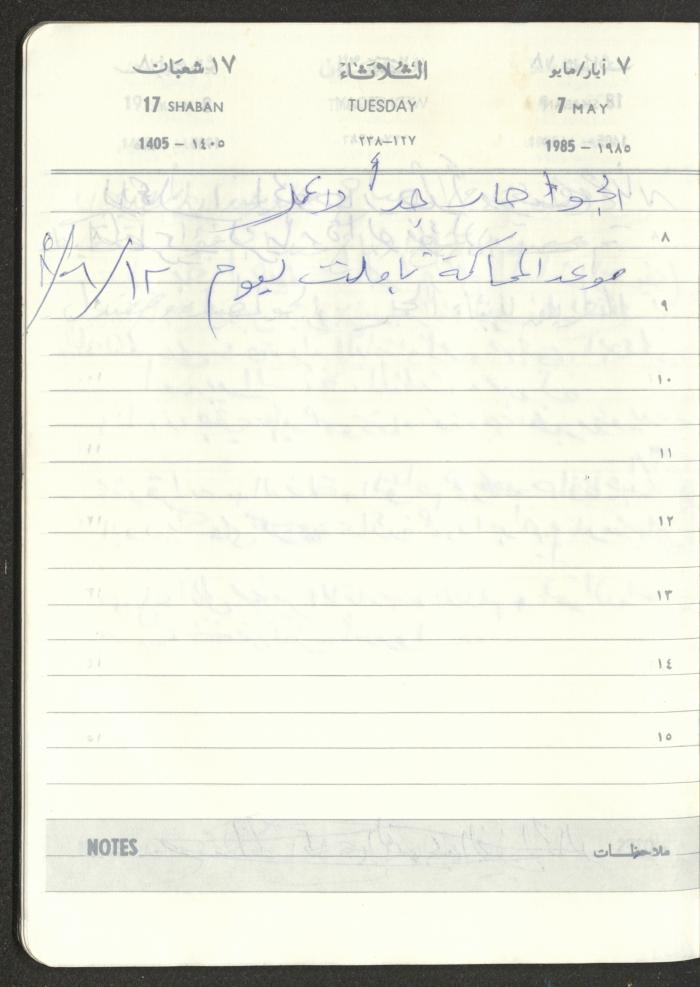 ٧ أيار/مايو الثلاثاء ١٧ شعبان
7 MAY TUESDAY 17 SHABAN
1985 – ١٩٨٥ ١٢٧–٢٣٨ 1405 – ١٤٠٥
الجو حار جداً لا عمل
٨
موعد المحاكمة تأجلت ليوم ١٢/٦/
٩
١٠
١١
١٢
١٣
١٤
١٥
ملاحظات NOTES